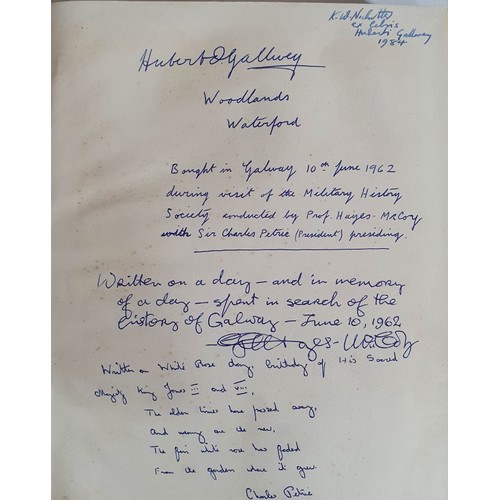 K.W. Nicholls
ex libris
Hubert Gallwey
1984
Hubert Gallwey
Woodlands
Waterford
Bought in Galway 10th June 1962
during visit of the Military History
Society conducted by Prof. Hayes-McCoy
with Sir Charles Petrie (President) presiding.
Written on a day — and in memory
of a day — spent in search of the
history of Galway — June 10, 1962
Hayes-McCoy
Written on White Rose day, birthday of His Sacred
Majesty King James III and VIII,
The olden times have passed away,
And weary are the new,
The fair white rose has faded
From the garden where it grew.
Charles Petrie